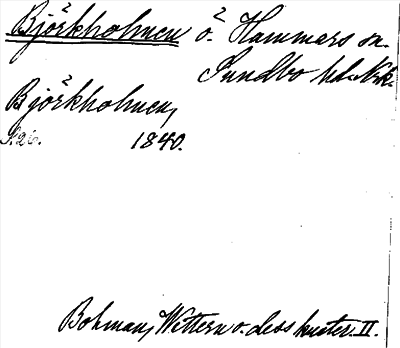 Björkholmen ö. Hammars sn.
Sundbo hd. Nrk.
Björkholmen,
S.26. 1840.
Bohman, Wettern o. dess kuster. II.